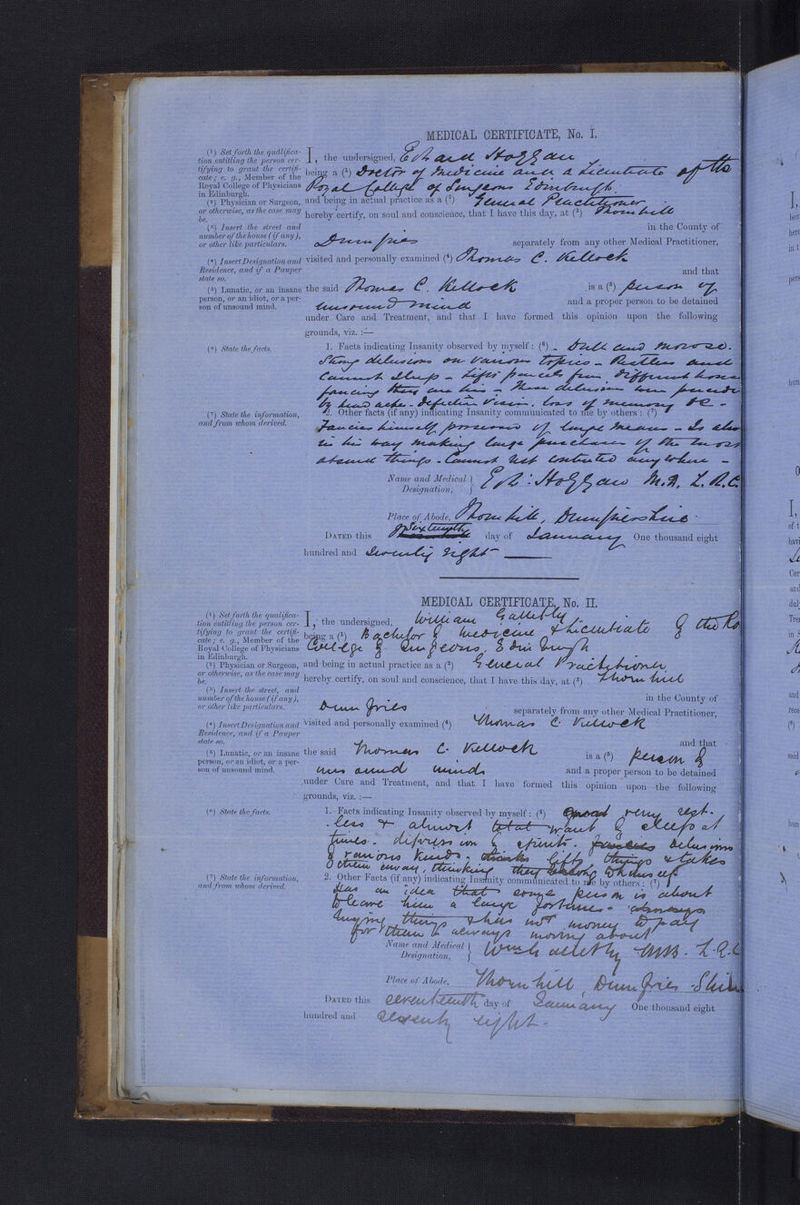 MEDICAL CERTIFICATE, No. I.
(1) Set forth the qualifica-
tion entitling the person cer-
tifying to grant the certifi-
cate; e. g., Member of the
Royal College of Physicians
in Edinburgh.
(2) Physician or Surgeon,
or otherwise, as the case may
be.
(3) Insert the street and
number of the house (if any),
or other like particulars.
(4) Insert Designation and
Residence, and if a Pauper
state so.
(5) Lunatic, or an insane
person, or an idiot, or a per-
son of unsound mind.
(6) State the facts.
(7) State the information,
and from whom derived.
I, the undersigned, Hoggan
being a (1) Doctor of Medicine and a Licentiate of the
Royal College of Surgeons Edinburgh.
and being in actual practice as a (2) General Practitioner
hereby certify, on soul and conscience, that I have this day, at (3) Thornhill
in the County of
Dumfries separately from any other Medical Practitioner,
visited and personally examined (4) Thomas C. Kellock
and that
the said Thomas C. Kellock is a (5) person of
unsound mind and a proper person to be detained
under Care and Treatment, and that I have formed this opinion upon the following
grounds, viz. :—
1. Facts indicating Insanity observed by myself: (6) - Dull and morose.
Strong delusions on various topics - Restless and
cannot sleep - lifts parcels from different
fancying they are his - These delusions
by head aches. defective vision. loss of memory &c -
2. Other facts (if any) indicating Insanity communicated to me by others: (7)
Fancies himself possessed of large means - Is also
in his way making large purchases of the most
absurd things - Cannot rest contented any where -
Name and Medical
Designation, Hoggan M.D. L.R.C.
Place of Abode, Thornhill, Dumfriesshire
DATED this Sixteenth day of January One thousand eight
hundred and Seventy eight
MEDICAL CERTIFICATE, No. II.
(1) Set forth the qualifica-
tion entitling the person cer-
tifying to grant the certifi-
cate; e. g., Member of the
Royal College of Physicians
in Edinburgh.
(2) Physician or Surgeon,
or otherwise, as the case may
be.
(3) Insert the street, and
number of the house (if any),
or other like particulars.
(4) Insert Designation and
Residence, and if a Pauper
state so.
(5) Lunatic, or an insane
person, or an idiot, or a per-
son of unsound mind.
(6) State the facts.
(7) State the information,
and from whom derived.
I, the undersigned, William
being a (1) Bachelor of Medicine & Licentiate of the Ro
College of Surgeons, Edinburgh
and being in actual practice as a (2) General Practitioner,
hereby certify, on soul and conscience, that I have this day, at (3) Thornhill
in the County of
Dumfries separately from any other Medical Practitioner,
visited and personally examined (4) Thomas C. Kellock
and that
the said Thomas C. Kellock is a (5) person of
unsound mind and a proper person to be detained
under Care and Treatment, and that I have formed this opinion upon the following
grounds, viz. :—
1. Facts indicating Insanity observed by myself: (6) very rest-
less & almost total want of sleep at
times. depression of spirits. Delusions
of various kinds. lifts things & takes
them away, thinking they belong to himself
2. Other Facts (if any) indicating Insanity communicated to me by others: (7)
Has an idea that some person is about
to leave him a large fortune.
buying things & has not money to pay
for them is always moving about
Name and Medical
Designation, MB. L.R.C
Place of Abode, Thornhill, Dumfries Shire
DATED this seventeenth day of January One thousand eight
hundred and seventy eight.